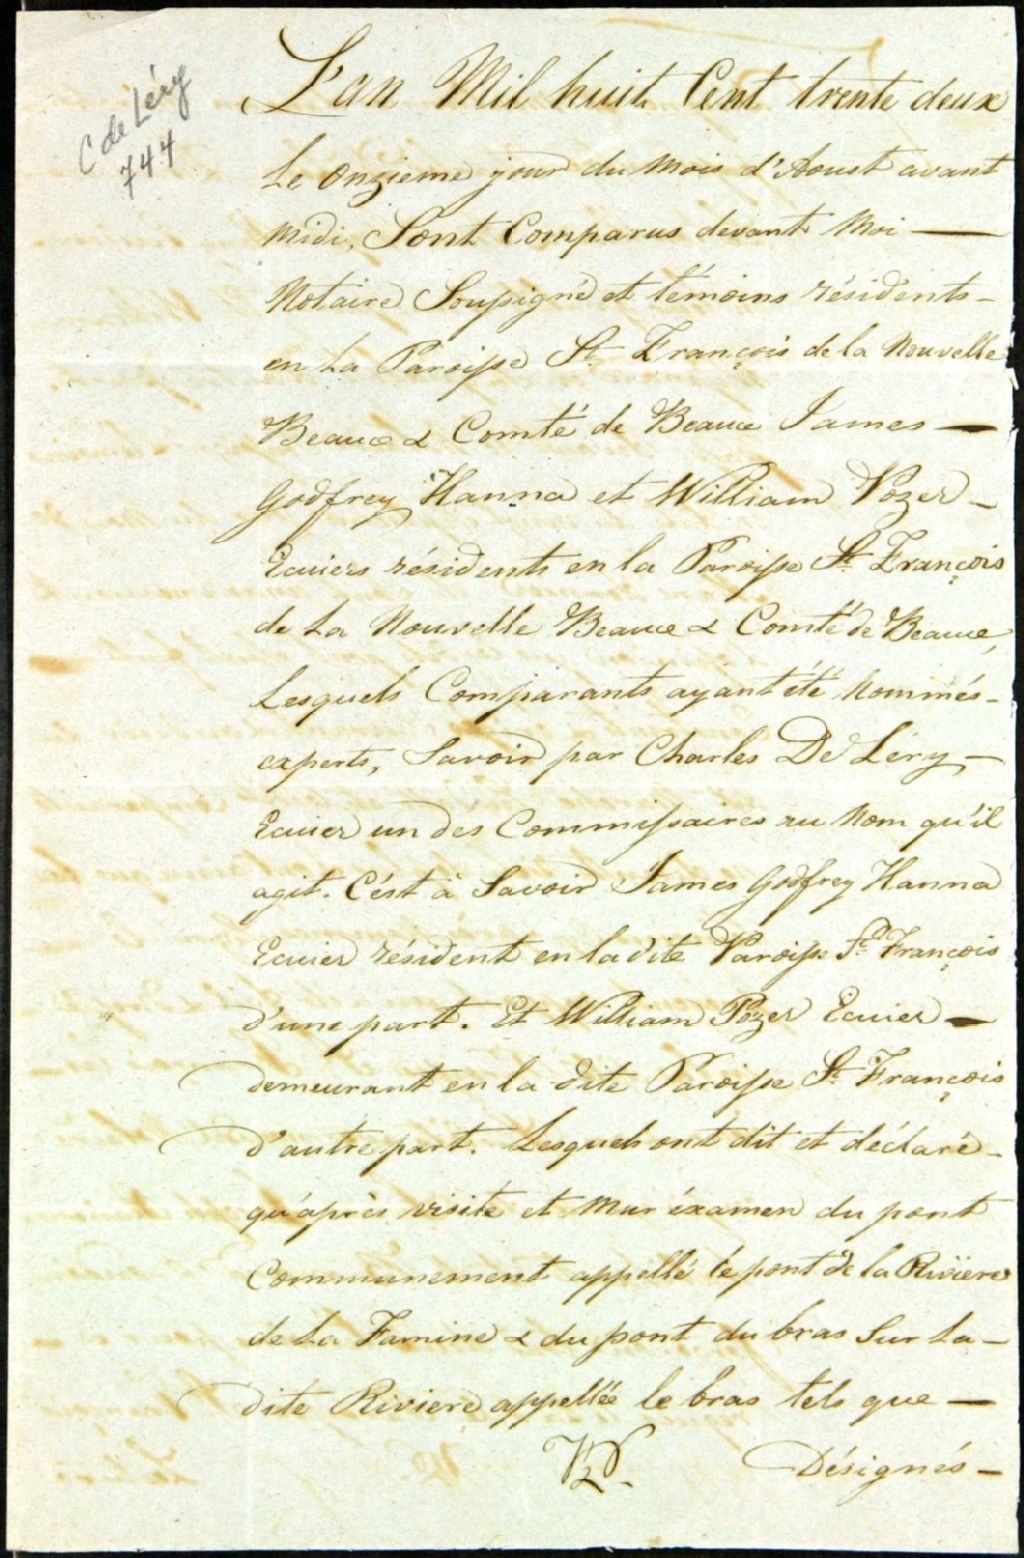 C de Léry
744
L'an Mil huit Cent trente deux
Le Onzieme jour du Mois d'Aoust avant
Midi, Sont Comparus devant Moi —
Notaire Soussigné et témoins résidents -
en La Paroisse St. François de la Nouvelle
Beauce & Comté de Beauce James —
Godfrey Hanna et William Pozer -
Ecuiers résidents en la Paroisse St. François
de La Nouvelle Beauce & Comté de Beauce,
Lesquels Comparants ayant été Nommés -
experts, Savoir par Charles De Léry -
Ecuier un des Commissaires au Nom qu'il
agit. C'ést à Savoir James Godfrey Hanna
Ecuier résident en la dite Paroisse St. François
d'une part. Et William Pozer Ecuier —
demeurant en la dite Paroisse St. François
d'autre part. Lesquels ont dit et déclaré -
qu'après visite et Mur éxamen du pont
Communement appellé le pont de la Rivière
de La Famine & du pont du bras Sur La -
dite Riviere appellée le bras tels que —
Désignés -